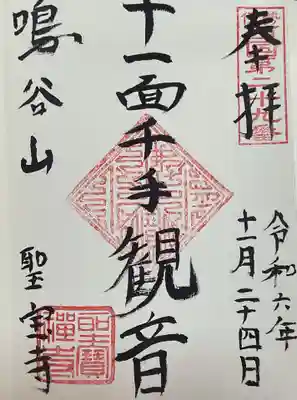 奉拝
令和六年
十一月二十四日
十一面千手観音
鳴谷山
聖宝寺
聖寶禅寺